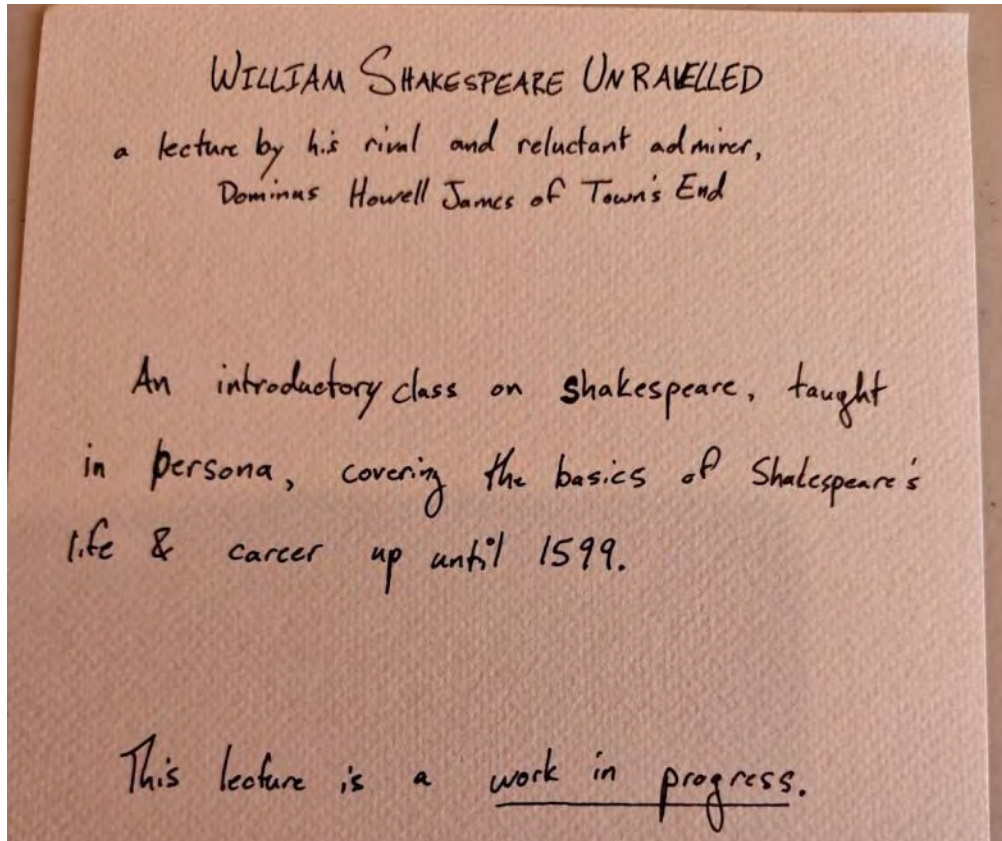 WILLIAM SHAKESPEARE UNRAVELLED
a lecture by his rival and reluctant admirer,
Dominus Howell James of Town's End
An introductory class on Shakespeare, taught
in persona, covering the basics of Shakespeare's
life & career up until 1599.
This lecture is a work in progress.